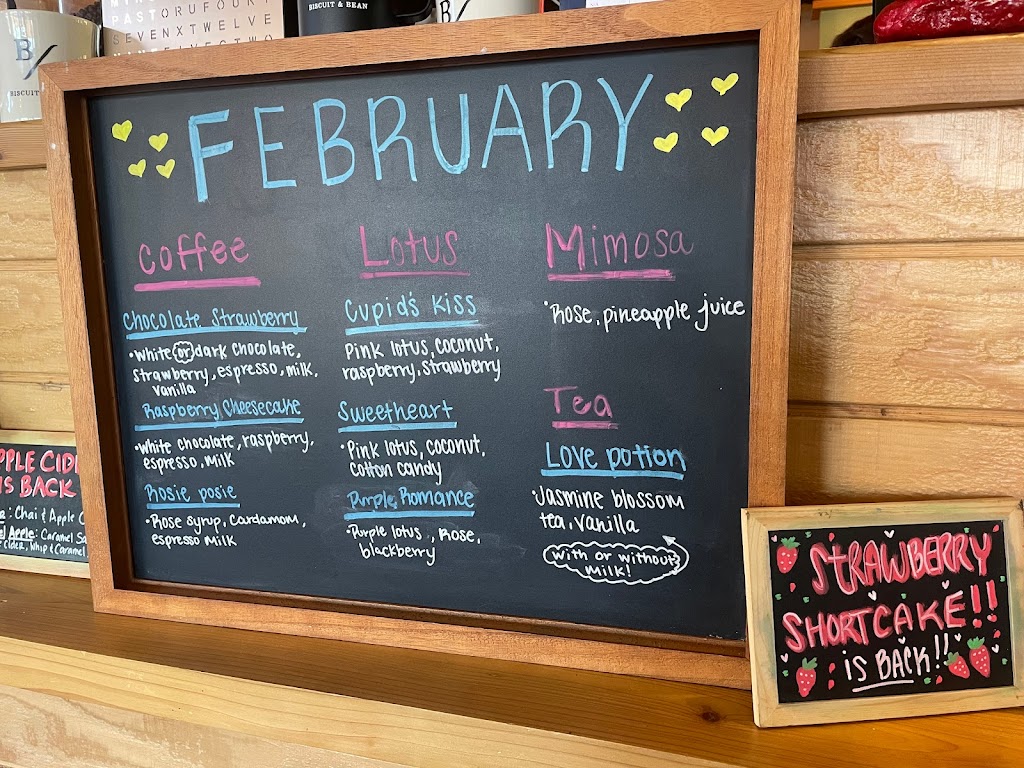 B
BISCUIT
PASTORUFOURT
SEVENXTWELVE
BISCUIT & BEAN
FEBRUARY
Coffee
Chocolate Strawberry
•White or dark chocolate,
strawberry, espresso, milk,
vanilla
Raspberry Cheesecake
•White chocolate, raspberry,
espresso, milk
Rosie posie
•Rose syrup, cardamom,
espresso milk
Lotus
Cupid's Kiss
Pink lotus, coconut,
raspberry, strawberry
Sweetheart
•Pink lotus, coconut,
cotton candy
Purple Romance
•Purple lotus, Rose,
blackberry
Mimosa
•Rose, pineapple juice
Tea
Love potion
•Jasmine blossom
tea, vanilla
With or without
milk!
PPLE CID
IS BACK
: Chai & Apple C
Apple: Caramel Sa
cider, whip & caramel
STRAWBERRY
SHORTCAKE!!
is BACK!!